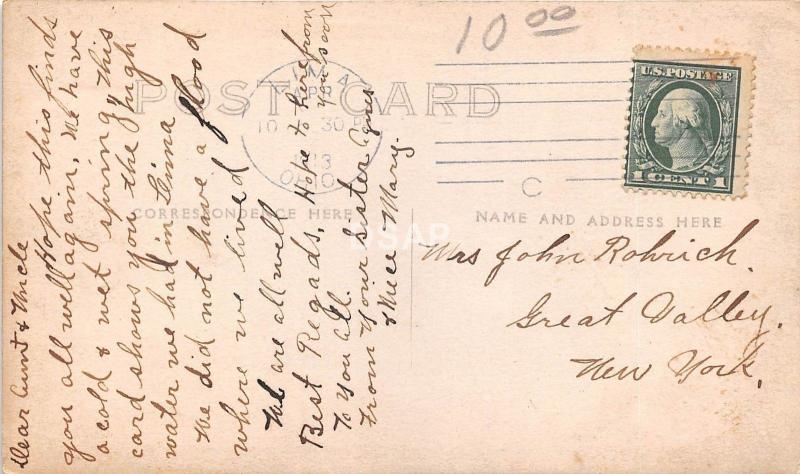 10 00
U.S. POSTAGE
1 CENT 1
POST CARD
LIMA
APR
10 30 P
1913
OHIO
C
CORRESPONDENCE HERE
NAME AND ADDRESS HERE
Dear Aunt & Uncle
Hope this finds
you all well again. We have
a cold & wet spring, this
card shows you the high
water we had in Lima
We did not have a flood
where we lived
We are all well
Best Regads. Hope to here from
To you all. you soon
From your Sister Agnes
& Niece Mary.
Mrs John Rohrich.
Great Valley.
New York.